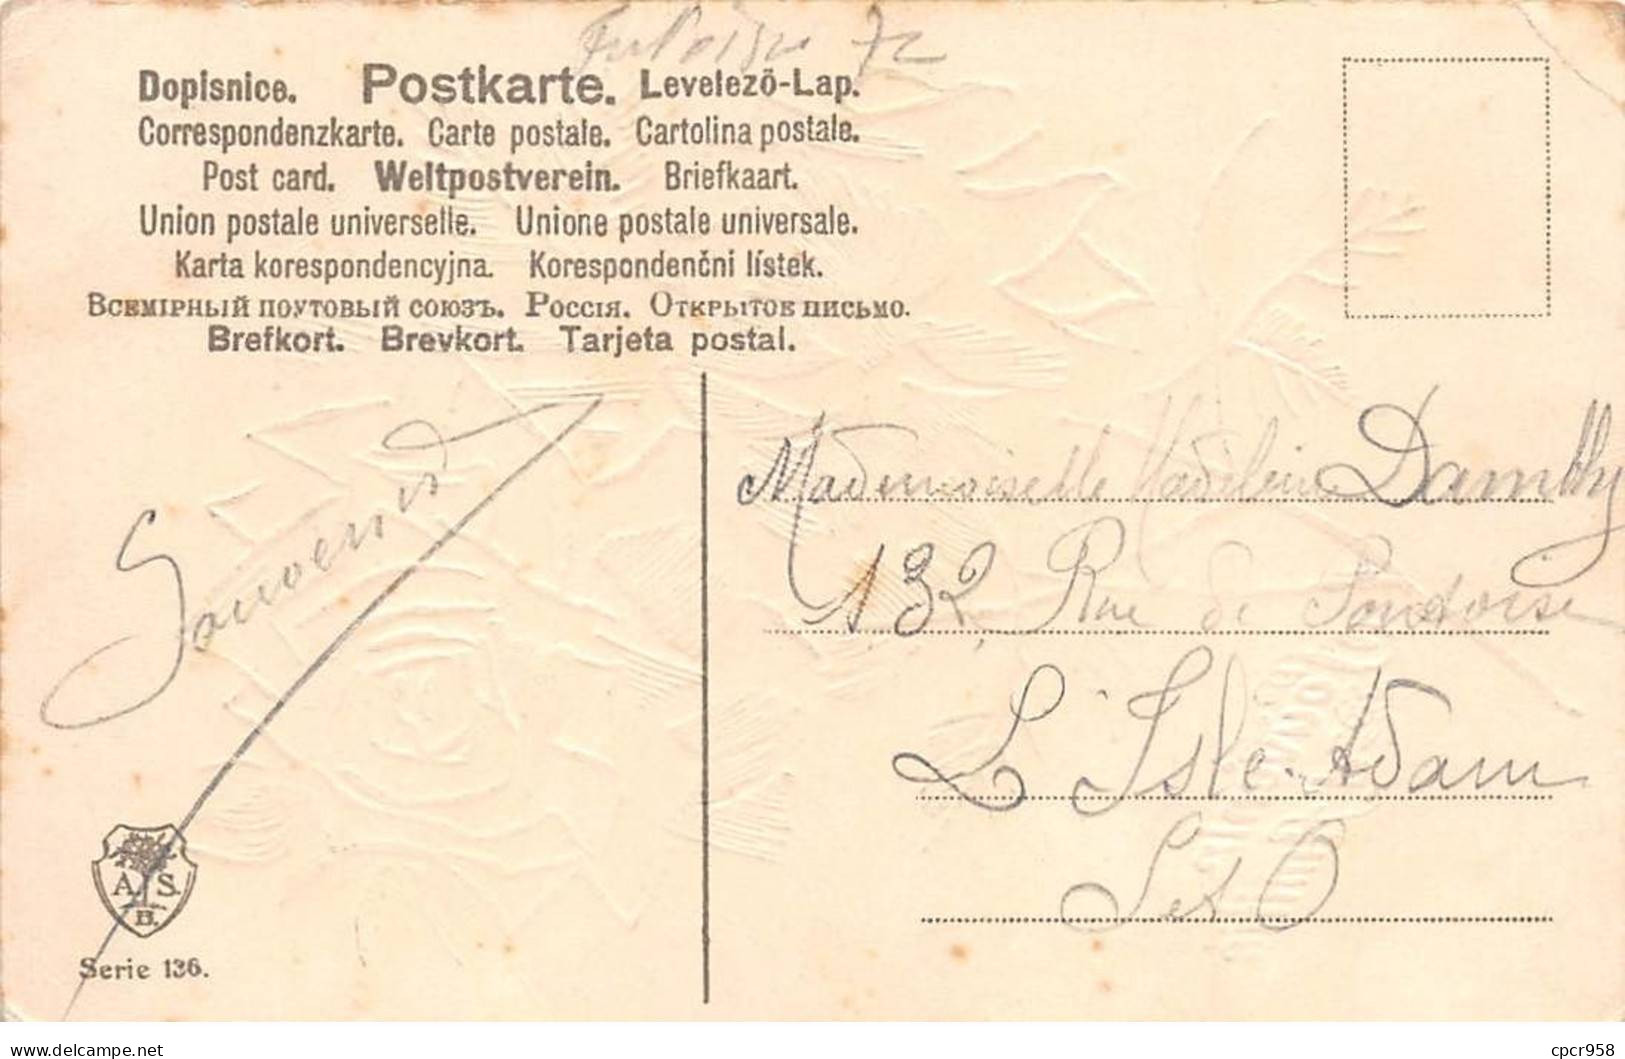 Dopisnice. Postkarte. Levelezö-Lap.
Correspondenzkarte. Carte postale. Cartolina postale.
Post card. Weltpostverein. Briefkaart.
Union postale universelle. Unione postale universale.
Karta korespondencyjna. Korespondenčni lístek.
Всемірный поутовый союзъ. Россія. Открытое письмо.
Brefkort. Brevkort. Tarjeta postal.
Souvenir
Mademoiselle Madeleine Dambly
132, Rue de Pontoise
L'Isle-Adam
S et O
A. S.
B.
Serie 136.
delcampe.net
cpcr958